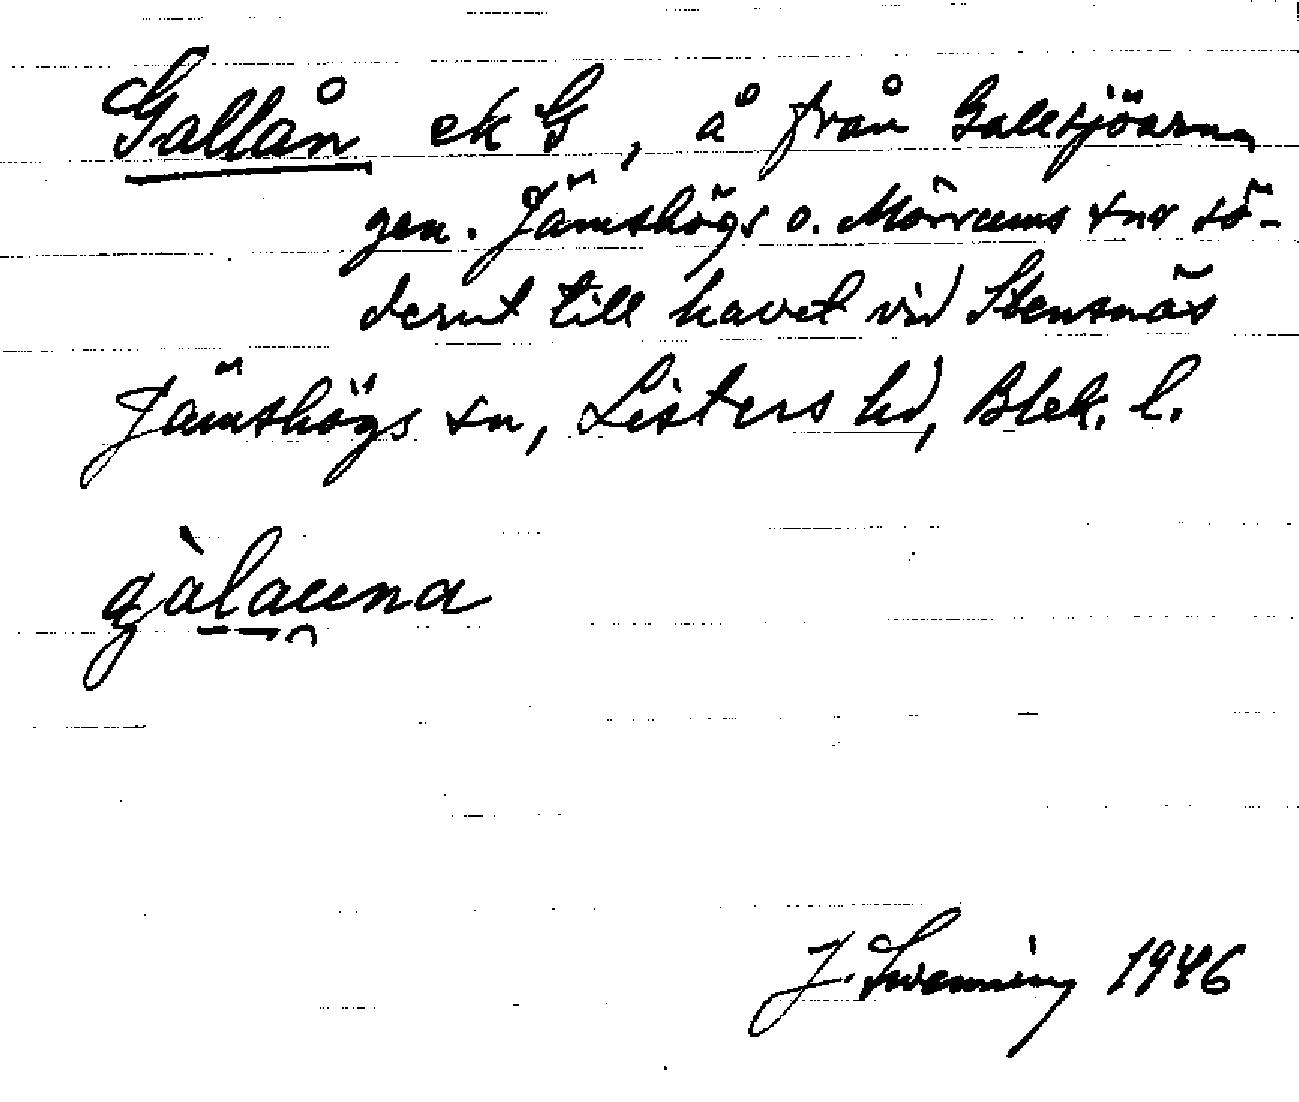 Gallån ek G, å från Galesjöarna
gen. Jämshögs o. Mörrums snr sö-
derut till havet vid Stensnäs
Jämshögs sn, Listers hd, Blek. l.
gàlauna
J. Swenning 1946